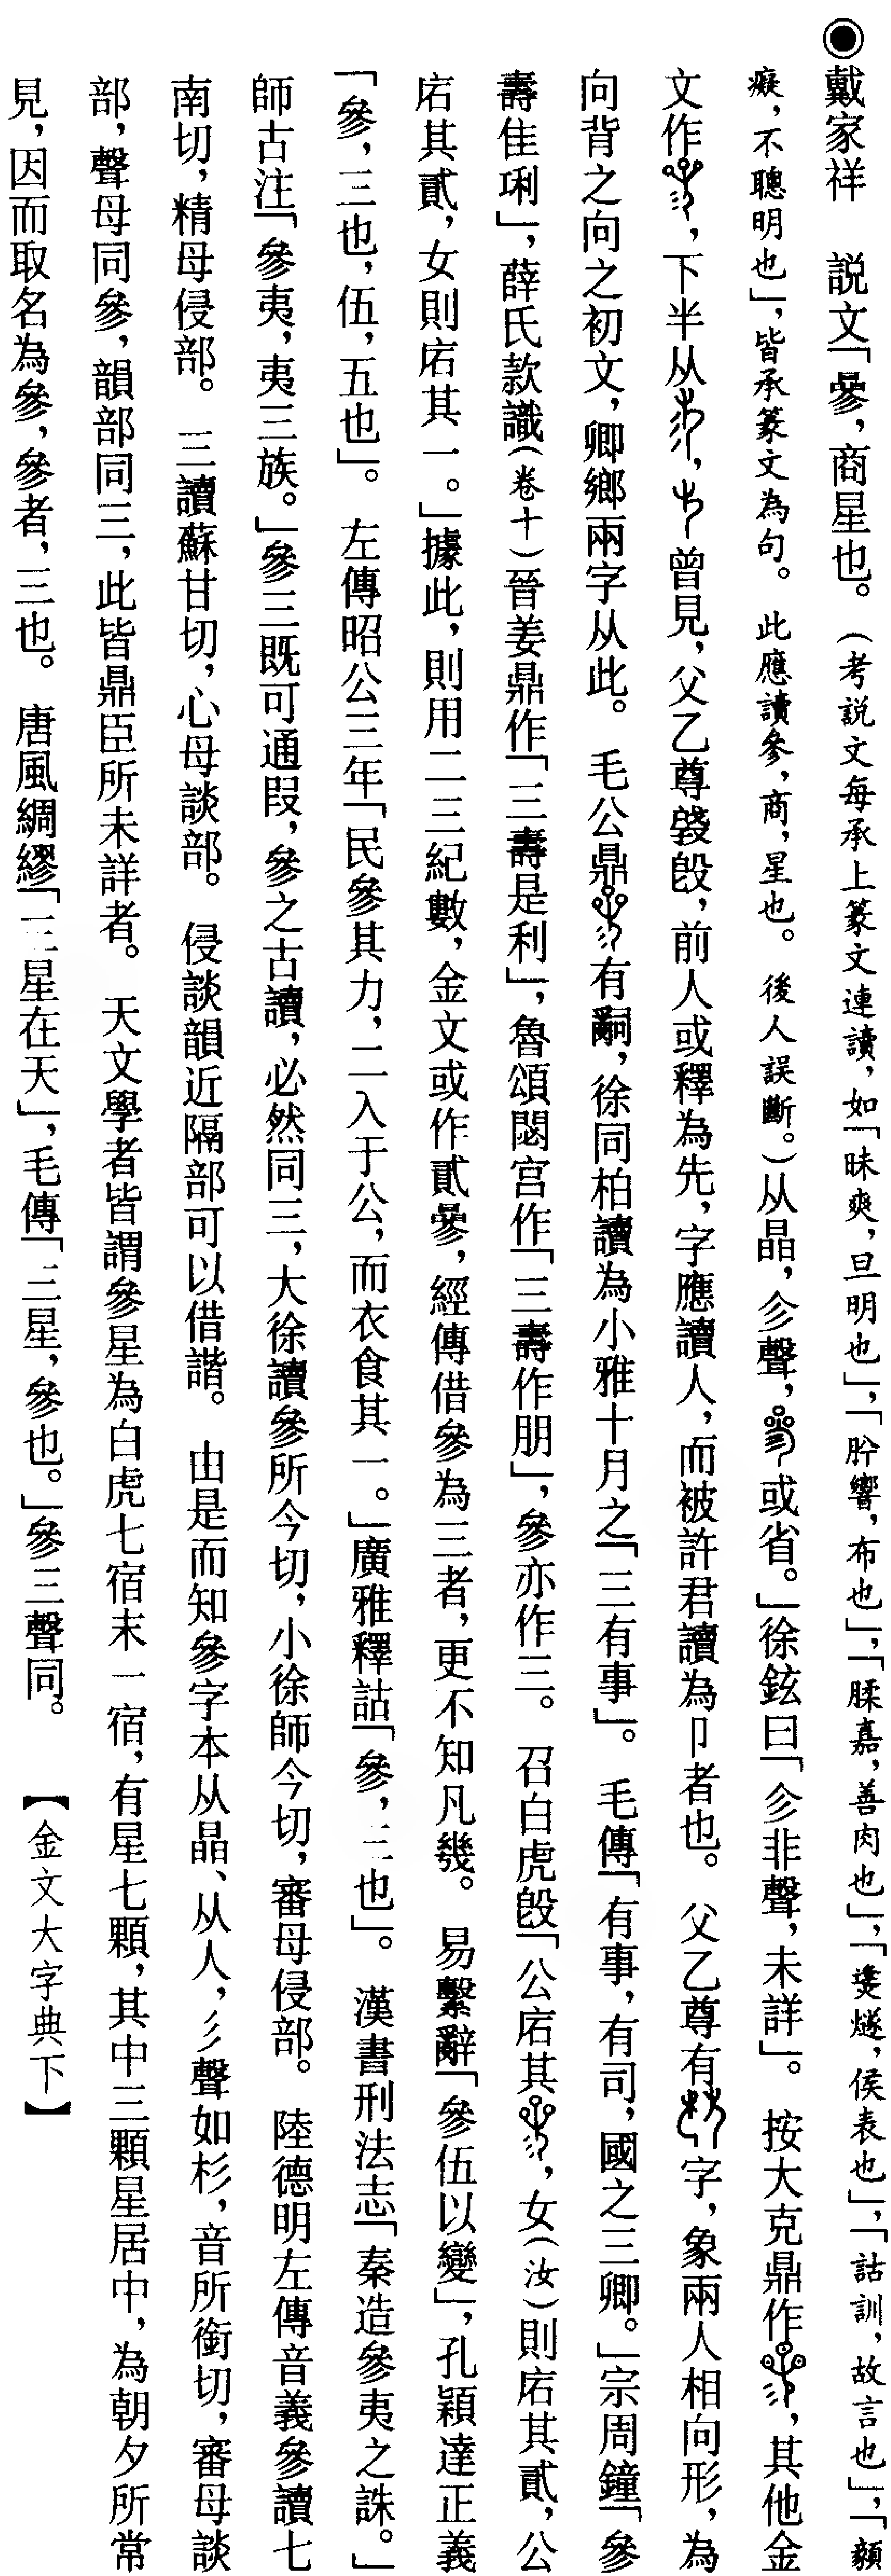 ◉戴家祥　説文「曑，商星也。（考説文每承上篆文連讀，如「昧爽，旦明也」，「肸響，布也」，「腬嘉，善肉也」，「㷭燧，侯表也」，「詁訓，故言也」，「顡
癡，不聰明也」，皆承篆文為句。此應讀參，商，星也。後人誤斷。）从晶，㐱聲，或省。」徐鉉曰「㐱非聲，未詳」。按大克鼎作，其他金
文作，下半从，曾見，父乙尊殷，前人或釋為先，字應讀人，而被許君讀為卩者也。父乙尊有字，象兩人相向形，為
向背之向之初文，卿鄉兩字从此。毛公鼎有嗣，徐同柏讀為小雅十月之「三有事」。毛傳「有事，有司，國之三卿。」宗周鐘「參
壽隹琍」，薛氏款識（卷十）晉姜鼎作「三壽是利」，魯頌閟宮作「三壽作朋」，參亦作三。召白虎𣪘「公宕其，女（汝）則宕其貳，公
宕其貳，女則宕其一。」據此，則用二三紀數，金文或作貳曑，經傳借參為三者，更不知凡幾。易繫辭「參伍以變」，孔穎達正義
「參，三也，伍，五也」。左傳昭公三年「民參其力，二入于公，而衣食其一。」廣雅釋詁「參，三也」。漢書刑法志「秦造參夷之誅。」
師古注「參夷，夷三族。」參三既可通叚，參之古讀，必然同三，大徐讀參所今切，小徐師今切，審母侵部。陸德明左傳音義參讀七
南切，精母侵部。三讀蘇甘切，心母談部。侵談韻近隔部可以借諧。由是而知參字本从晶、从人，彡聲如杉，音所銜切，審母談
部，聲母同參，韻部同三，此皆鼎臣所未詳者。天文學者皆謂參星為白虎七宿末一宿，有星七顆，其中三顆星居中，為朝夕所常
見，因而取名為參，參者，三也。唐風綢繆「三星在天」，毛傳「三星，參也。」參三聲同。【金文大字典下】